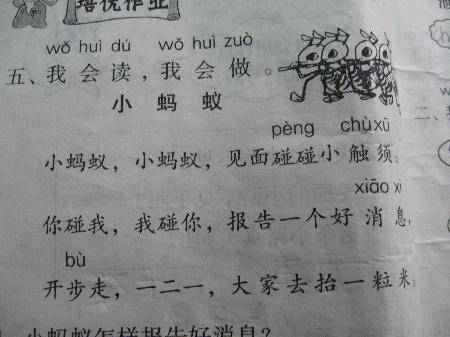 培优作业
wǒ huì dú wǒ huì zuò
五、我会读，我会做。
小蚂蚁
pèng chù xū
小蚂蚁，小蚂蚁，见面碰碰小触须。
xiāo xi
你碰我，我碰你，报告一个好消息，
bù
开步走，一二一，大家去抬一粒米。
小蚂蚁怎样报告好消息？
二、